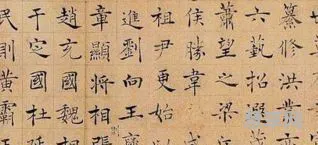 纂修洪業亦
六藝招選
蕭望之梁丘
侯勝韋
祖尹更始
進劉向王褒
章顯將相張
趙充國魏相
于定國杜延
民則黃霸